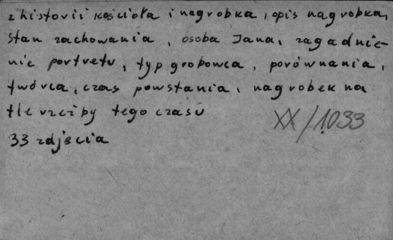 z historii kościoła i nagrobka, opis nagrobka,
stan zachowania, osoba Jana, zagadnie-
nie portretu, typ grobowca, porównania,
twórca, czas powstania, nagrobek na
tle rzeźby tego czasu
XX/1033
33 zdjęcia